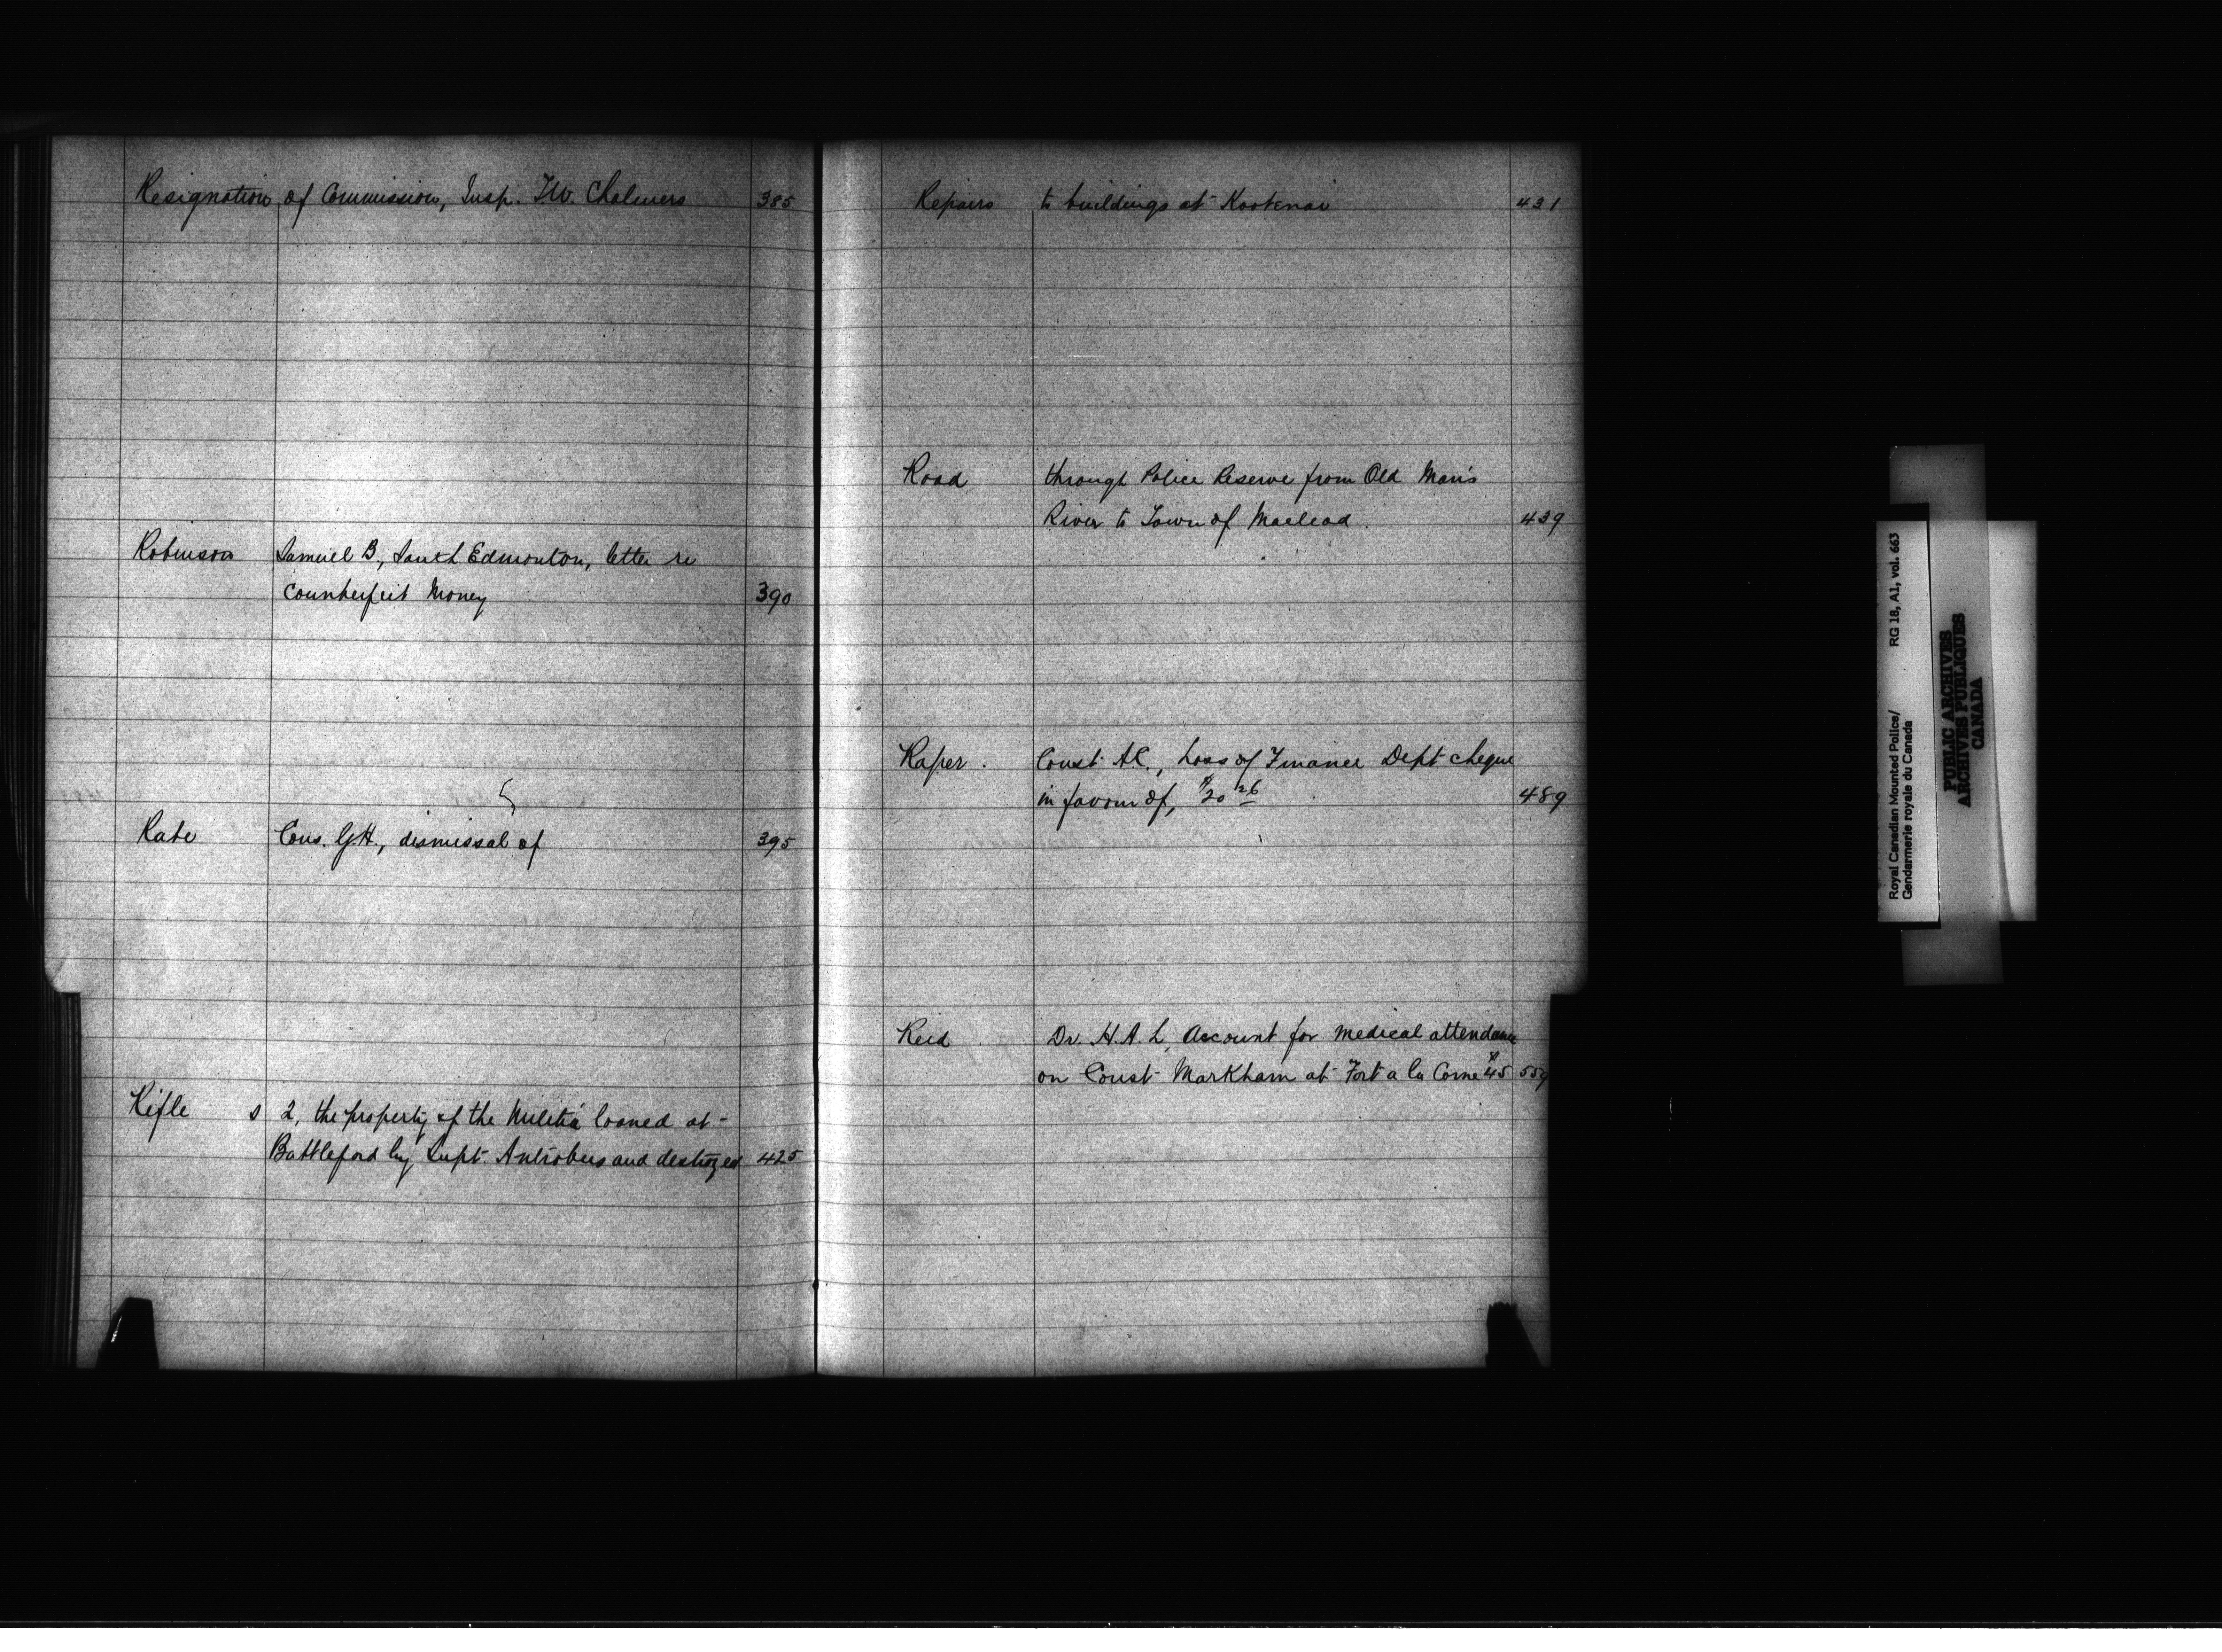 Resignation of Commission, Insp. T.W. Chalmers 385
Robinson Samuel B., South Edmonton, letter re
Counterfeit Money 390
Rate Cons. G.H., dismissal of 395
Rifle s 2, the property of the Militia loaned at
Battleford by Supt. Antrobus and destroyed 425
Repairs to buildings at Kootenai 431
Road through Police Reserve from Old Man's
River to Town of Macleod. 439
Raper. Const. A.C., Loss of Finance Dept cheque
in favour of, $20 26 489
Reid Dr. H.A.L, Account for medical attendance
on Const. Markham at Fort a la Corne $45 559
Royal Canadian Mounted Police/ RG 18, A1, vol. 663
Gendarmerie royale du Canada
PUBLIC ARCHIVES
ARCHIVES PUBLIQUES
CANADA